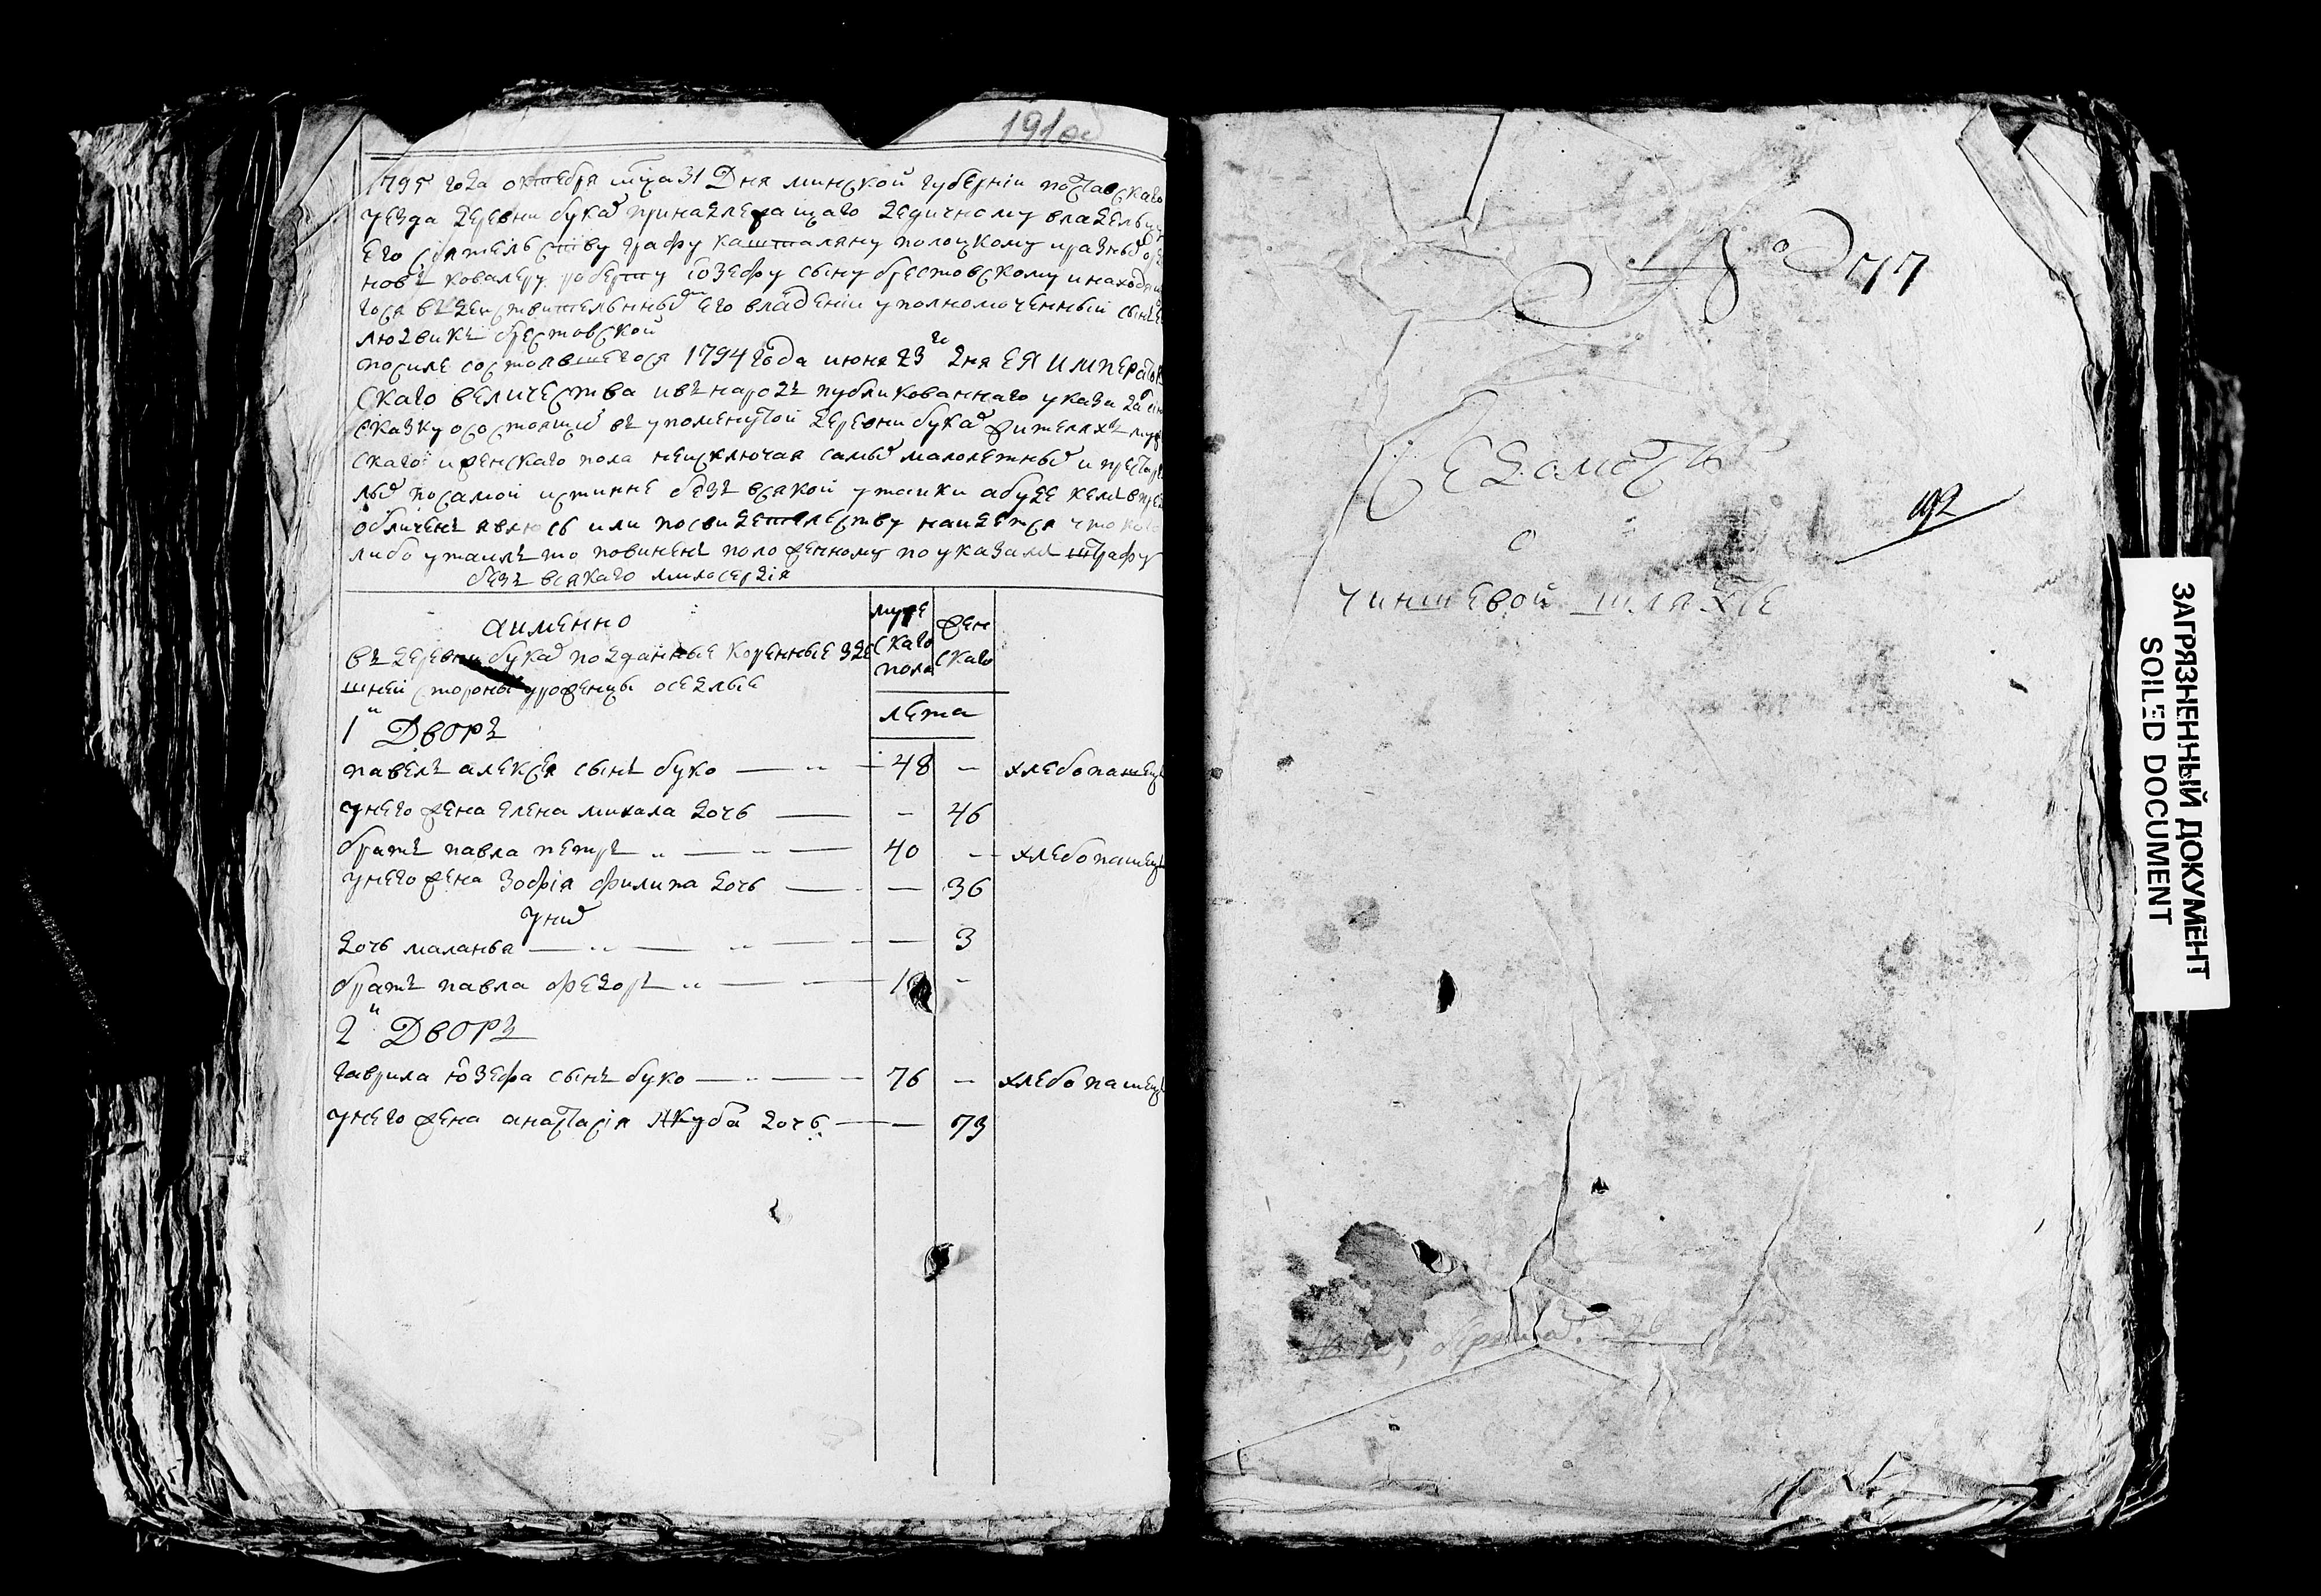 191об
1795 года октября мца 31 Дня минской губерніи поставскаго
уезда деревни букъ принадлежащаго дедичному владельцу
Его сіятельству графу кашталяну полоцкому и разныхъ орде
новъ ковалеру роберту юзефу сыну брестовскому и находя
гося въ действительныхъ его владеніи уполномоченный сынъ
людвикъ брестовской
посиле состоявшегося 1794 года июня 23го дня ЕЯ ИМПЕРАТОР
скаго величества и въ народъ публикованнаго указа
сказку о состоящих въ упоменутой деревни буках жителяхъ муж
скаго и женскаго пола неисключая самых малолетных и престаре
лых по самой истинне безъ всякой утайки а буде кемъ
обличенъ явлюсь или по свидетелству найдется что кого
либо утаилъ то повиненъ положенному по указамъ штрафу
безъ всякаго милосердія
а именно
муже
скаго
пола
жен
скаго
въ деревни буках поздан­ные коренные зде
шней стороны уроженцы оседлые
лета
1й Дворъ
павелъ алексея сынъ буко 48 — хлебопашецъ
у него жена елена михала дочь — 46
братъ павла петръ 40 — хлебопашецъ
у него жена зофія филипа дочь — 36
у них
дочь маланья — 3
братъ павла федоръ —
2й Дворъ
гаврила юзефа сынъ буко 76 — хлебопашецъ
у него жена анастасія якуба дочь — 73
№ 77
Ведомость
192
о
чиншевой шляхте
ЗАГРЯЗНЕННЫЙ ДОКУМЕНТ
SOILED DOCUMENT